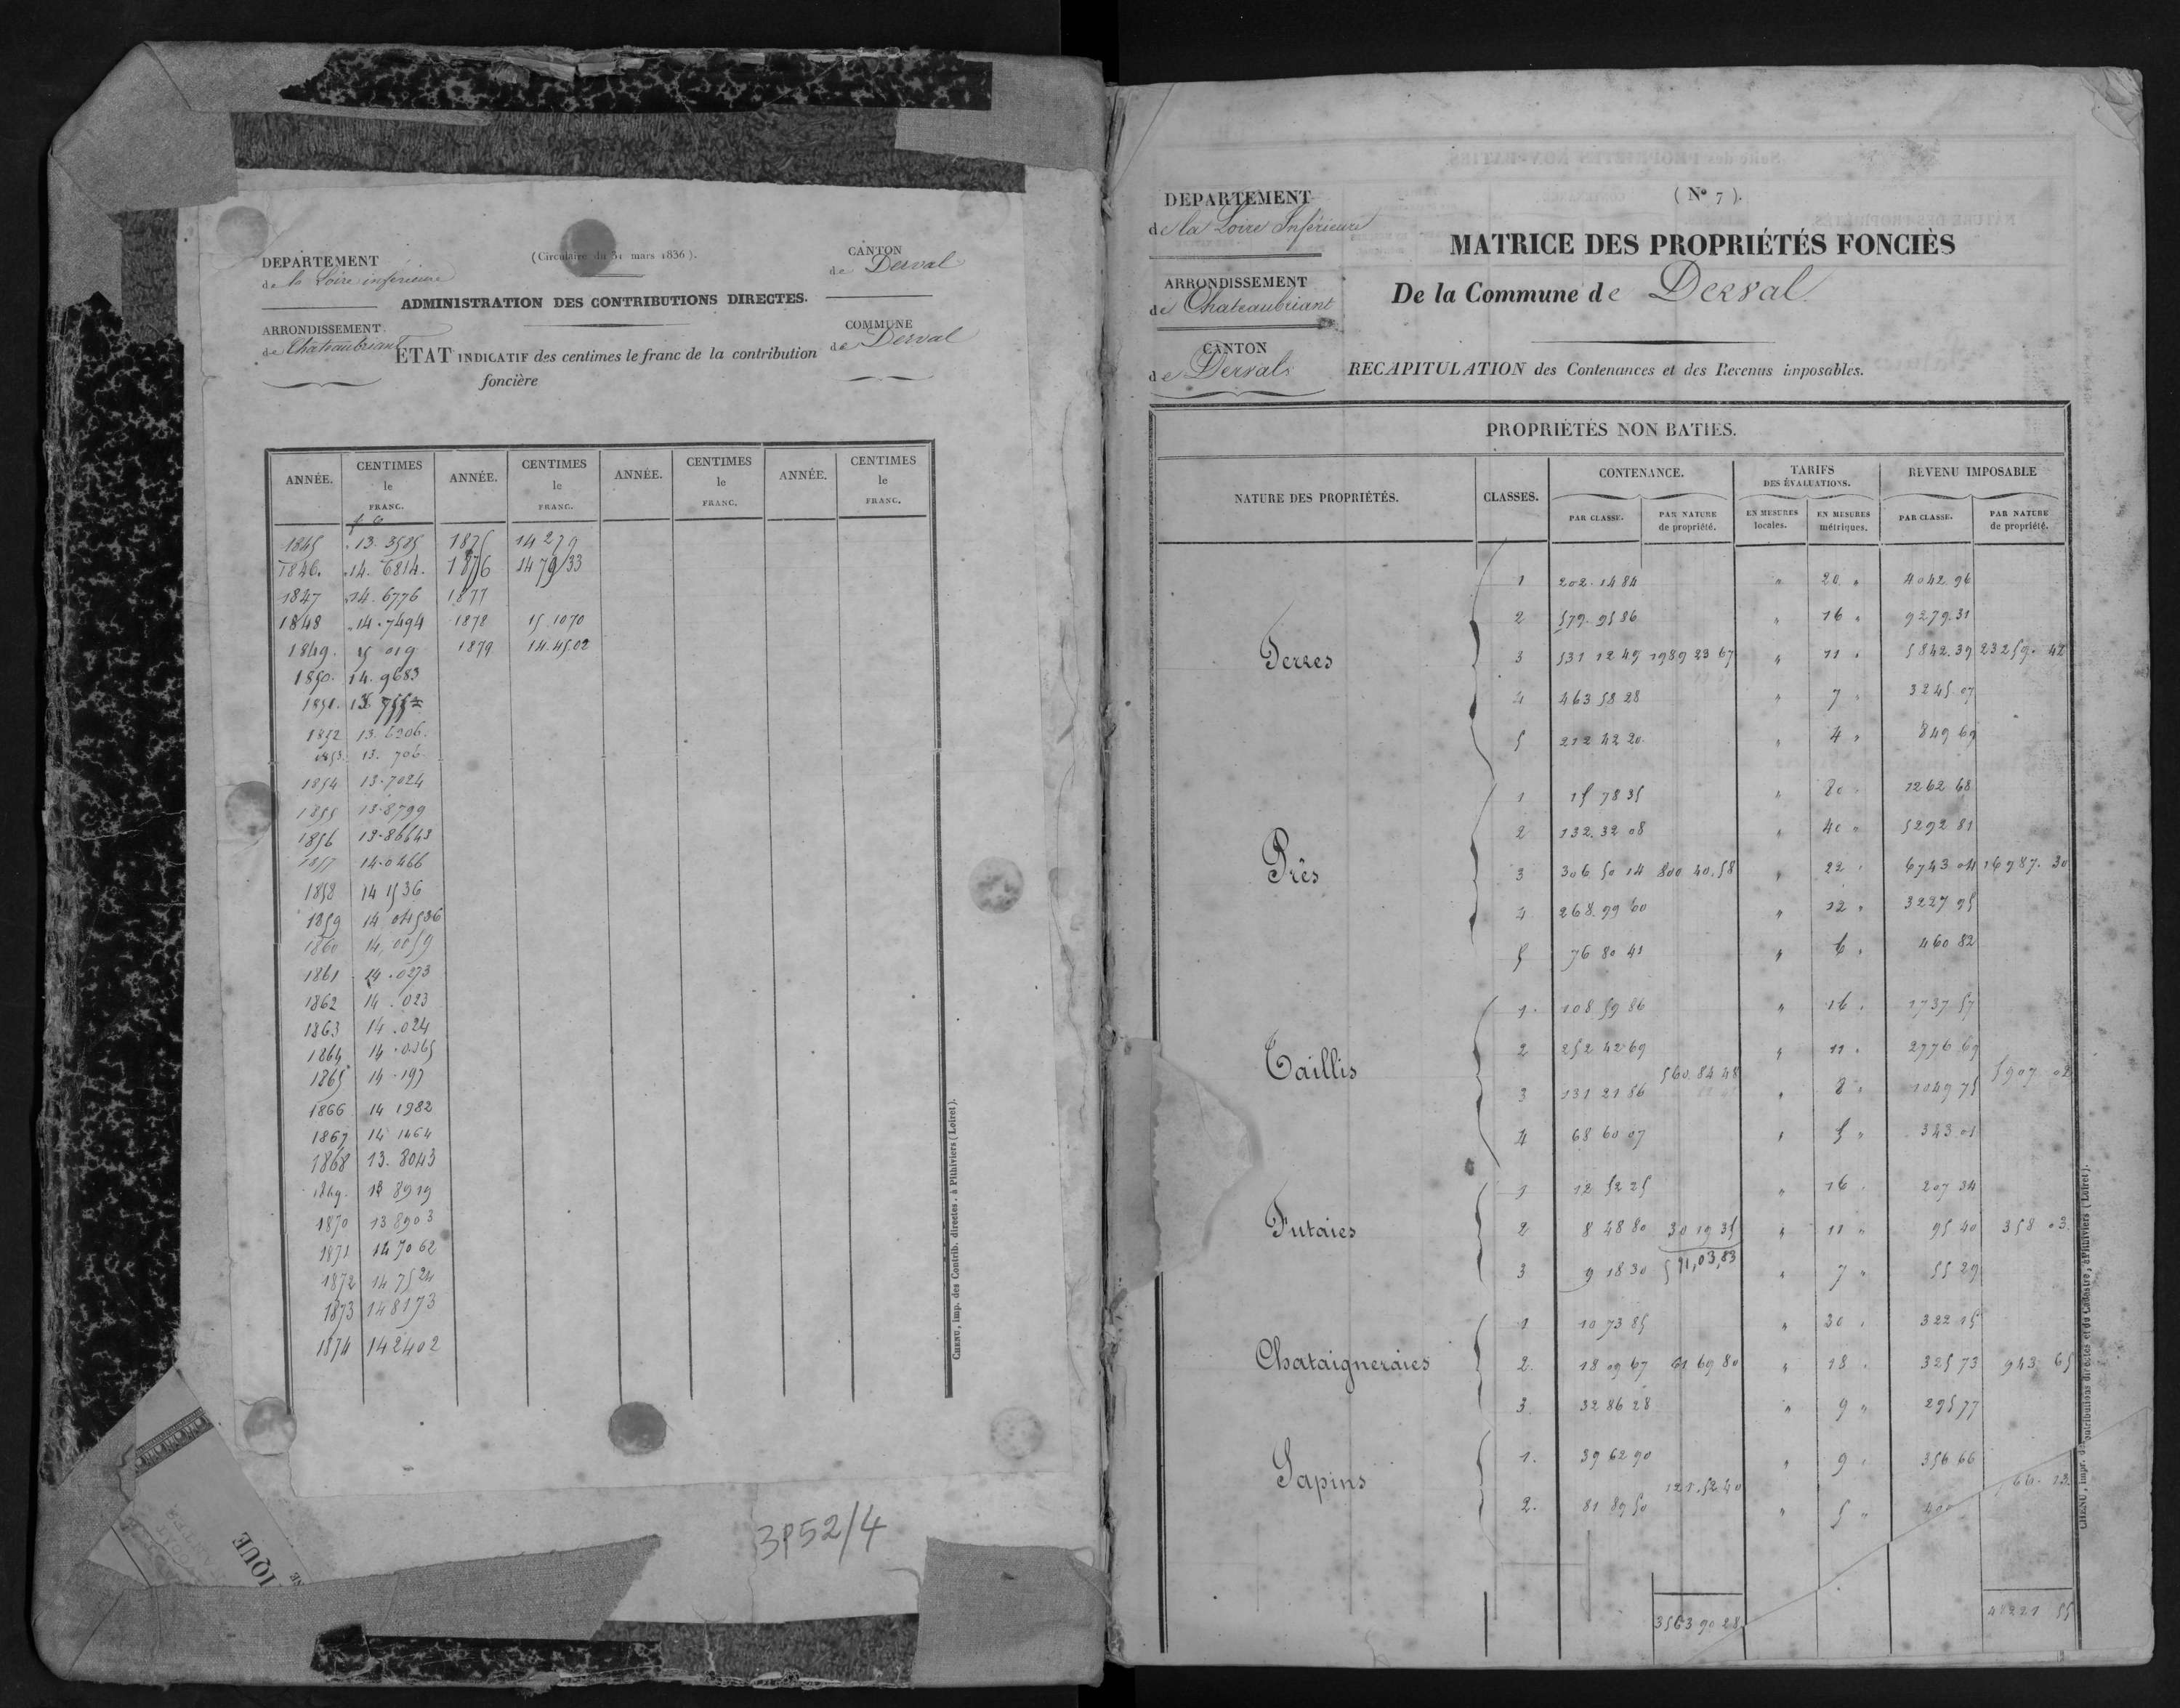 DEPARTEMENT
de la Loire inférieure
ARRONDISSEMENT
de Chateaubriant
(Circulaire du 31 mars 1836).
ADMINISTRATION DES CONTRIBUTIONS DIRECTES.
ETAT INDICATIF des centimes le franc de la contribution
foncière
CANTON
de Derval
COMMUNE
de Derval
ANNÉE. CENTIMES le FRANC. ANNÉE. CENTIMES le FRANC. ANNÉE. CENTIMES le FRANC. ANNÉE. CENTIMES le FRANC.
f c
1845 13. 3585 1875 14 279
1846. 14. 6814. 1876 1479/33
1847 14. 6776 1877
1848 14. 7494 1878 15. 1070
1849. 15 019 1879 14. 4502
1850. 14. 9683
1851.
1852 13. 6206.
1853. 13. 706
1854 13. 7024
1855 13. 8799
1856 13. 86643
1857 14. 0466
1858 14 1536
1859 14, 04536
1860 14, 0059
1861 14. 0273
1862 14. 023
1863 14. 024
1864 14.
1865 14. 197
1866 14 1982
1867 14 1464
1868 13. 8043
1869. 13 8919
1870 13 8903
1871 14 7062
1872 14 7524
1873 14 8173
1874 14 2402
CHENU, imp. des Contrib. directes, à Pithiviers (Loiret).
3P52/4
IQUE
DEPARTEMENT
de la Loire Inférieure
ARRONDISSEMENT
de Chateaubriant
CANTON
de Derval
(N° 7).
MATRICE DES PROPRIÉTÉS FONCIÈS
De la Commune de Derval
RECAPITULATION des Contenances et des Revenus imposables.
PROPRIÉTÉS NON BATIES.
NATURE DES PROPRIÉTÉS. CLASSES. CONTENANCE. TARIFS DES ÉVALUATIONS. REVENU IMPOSABLE
PAR CLASSE. PAR NATURE de propriété. EN MESURES locales. EN MESURES métriques. PAR CLASSE. PAR NATURE de propriété.
1 202. 14 84 " 20 " 4042. 96
2 579. 95 86 " 16 " 9279. 31
Terres 3 531 12 49 1989 23 67 " 11 " 5842. 39 23259. 42
4 463 58 28 " 7 " 3245. 07
5 212 42 20 " 4 " 849 69
1 15 78 35 " 80 " 1262 68
2 132. 32 08 " 40 " 5292 81
Prés 3 306. 50 14 800 40. 58 " 22 " 6743 04 16987. 30
4 268. 99 60 " 12 " 3227 95
5 76 80 41 " 6 " 460 82
1. 108 59 86 " 16 " 1737 57
Taillis 2 252 42 69 " 11 " 2776 69
560. 84 48 5907 02
3 131 21 86 " 8 " 1049 75
4 68 60 07 " 5 " 343 01
1 12 52 25 " 16 " 207 34
Futaies 2 8 48 80 30 19 35 " 11 " 95 40 358 03
3 9 18 30 591,03,83 " 7 " 55 29
1 10 73 85 " 30 " 322 15
Chataigneraies 2. 18 09 67 61 69 80 " 18 " 325 73 943 65
3. 32 86 28 " 9 " 295 77
Sapins 1. 39 62 90 " 9 " 356 66
121. 52 40
2. 81 89 50 " 5 "
3563 90 28
48221 55